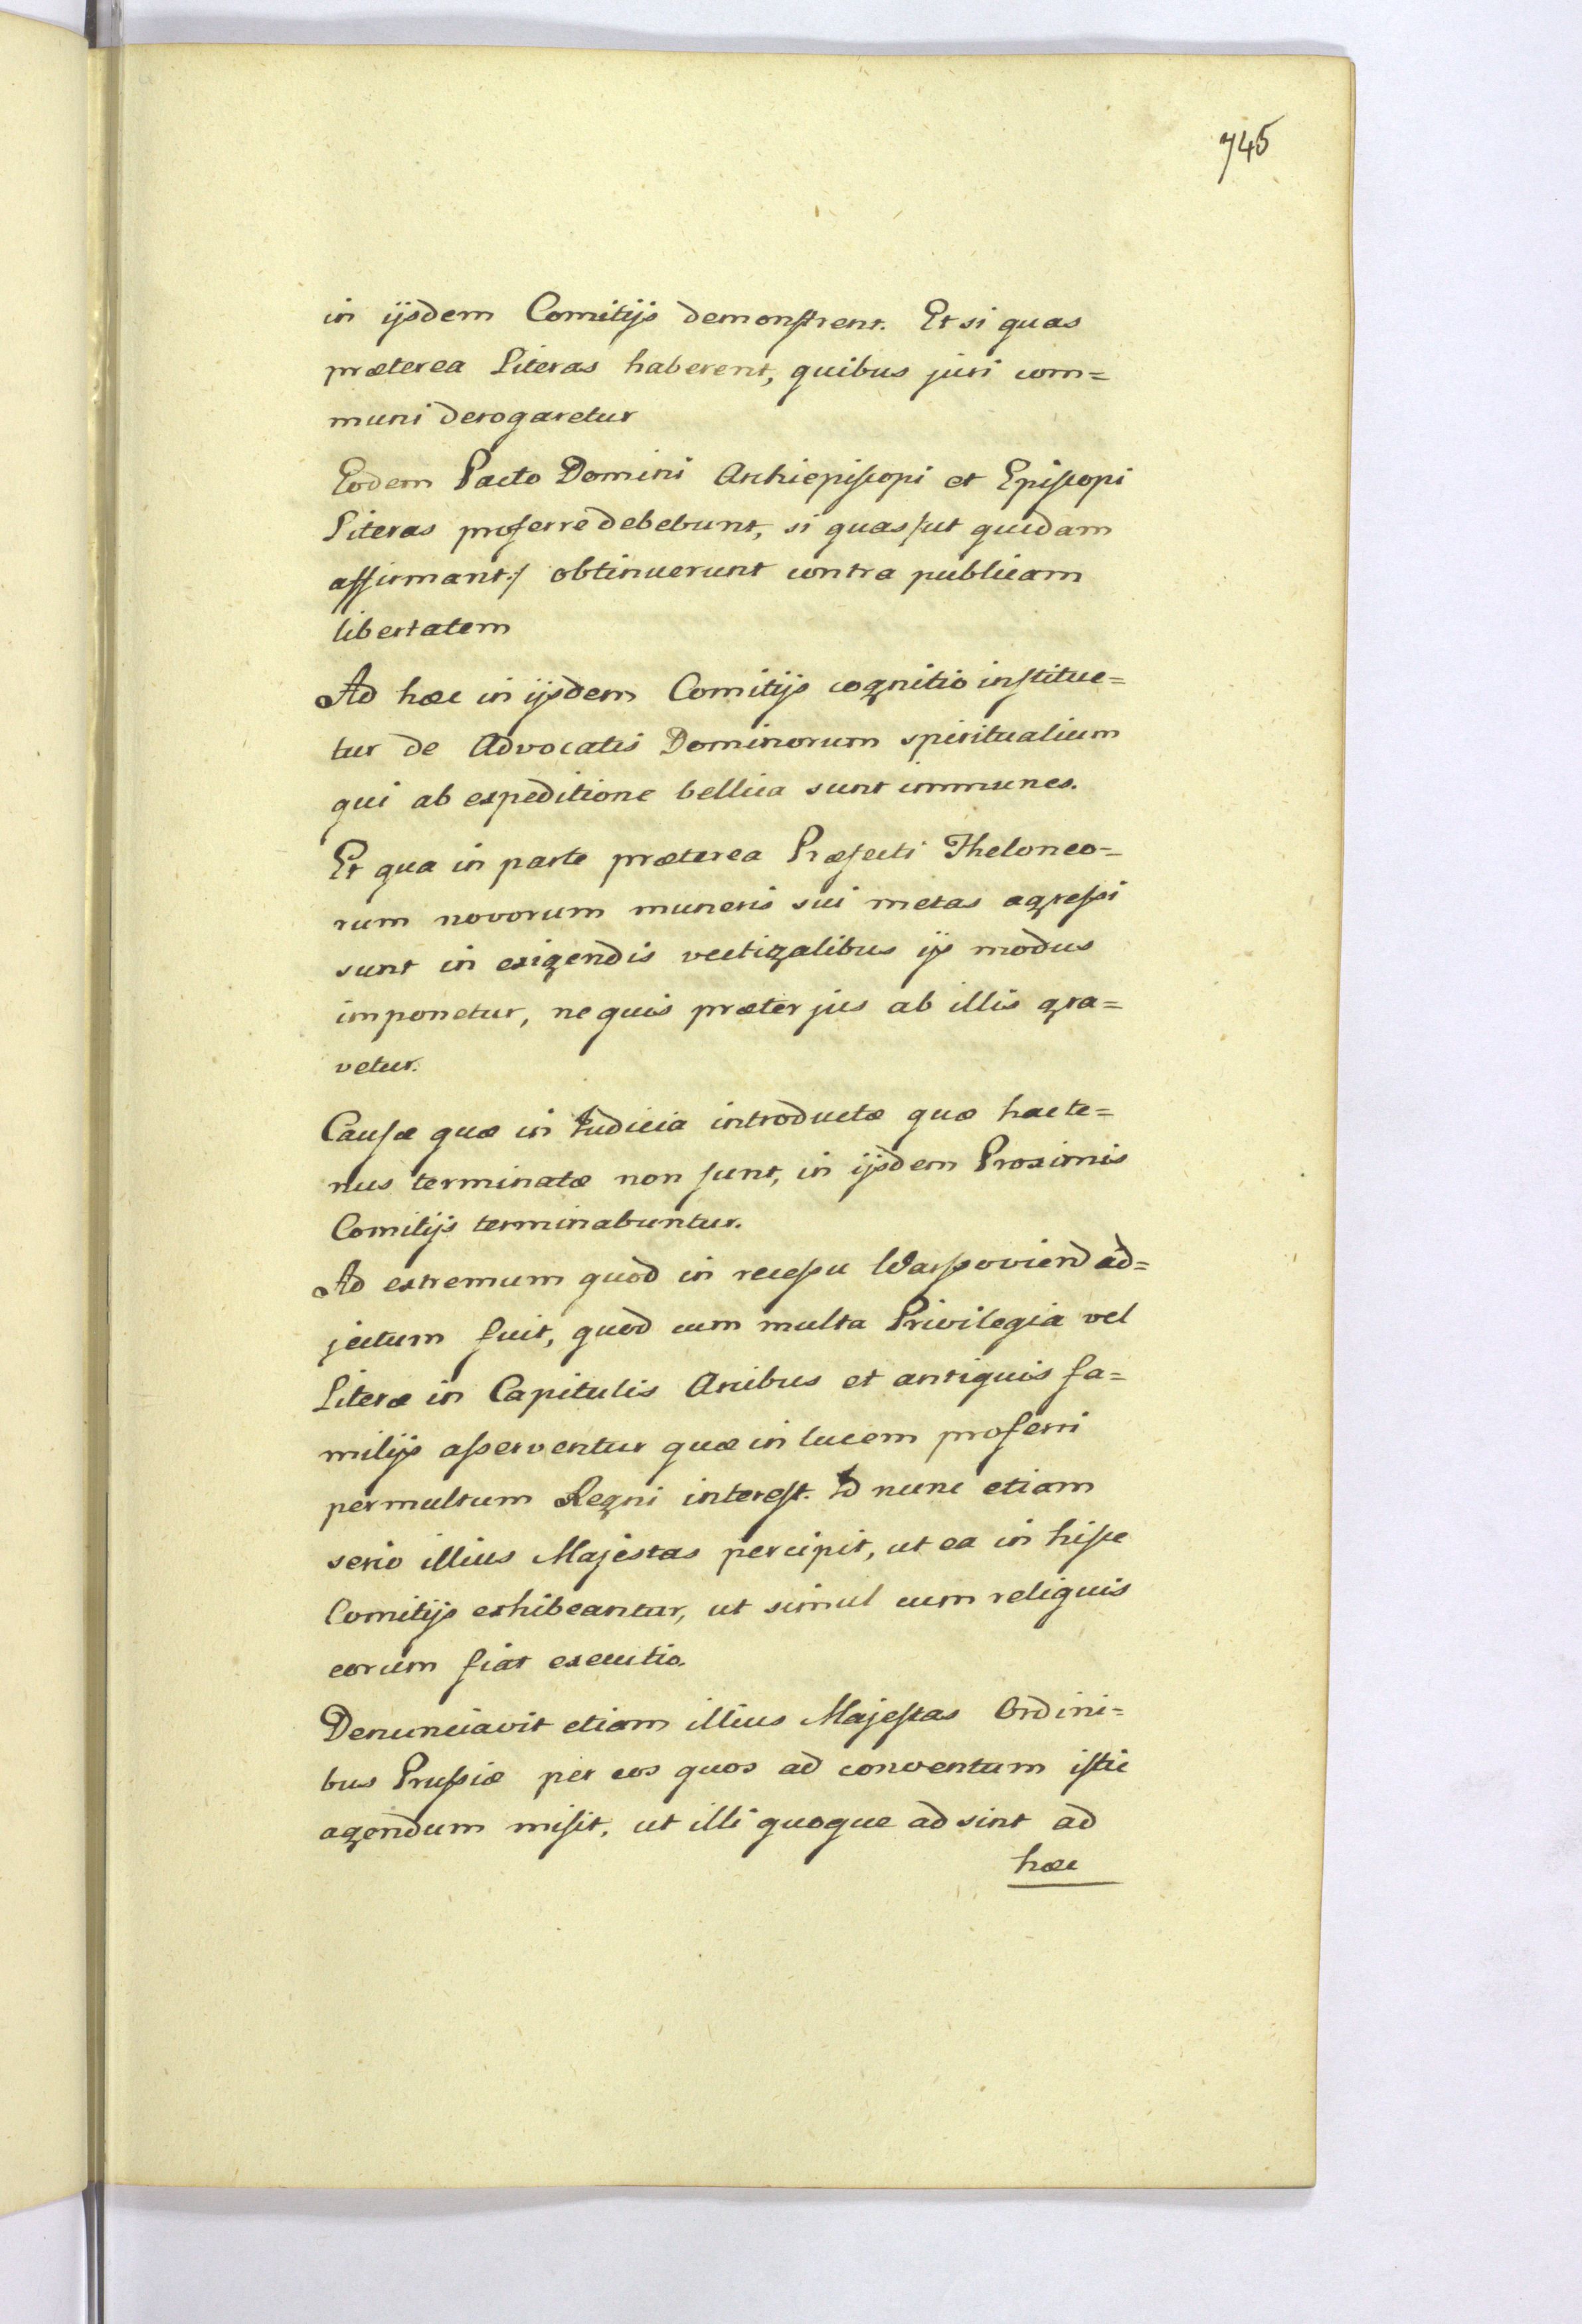 745
in ijsdem Comitijs demonstrent. Et si quas
præterea Literas haberent, quibus juri com=
muni derogaretur
Eodem Pacto Domini Archiepiscopi et Episcopi
Literas proferre debebunt, si quas /ut quidam
affirmant:/ obtinuerunt contra publicam
libertatem
Ad hæc in ijsdem Comitijs cognitio institue=
tur de Advocatis Dominorum spiritualium
qui ab expeditione bellica sunt immunes.
Et qua in parte præterea Præfecti Theloneo=
rum novorum muneris sui metas agressi
sunt in exigendis vectigalibus ijs modus
imponetur, ne quis præter jus ab illis gra=
vetur.
Causæ quæ in Judicia introductæ quæ hacte=
nus terminatæ non sunt, in ijsdem Proximis
Comitijs terminabuntur.
Ad extremum quod in recessu ad=
jectum fuit, quod cum multa Privilegia vel
Literæ in Capitulis Arcibus et antiquis fa=
milijs asserventur quæ in lucem proferri
permultum Regni interest. Id nunc etiam
serio illius Majestas percipit, ut ea in hisce
Comitijs exhibeantur, ut simul cum reliquis
eorum fiat executio.
Denunciavit etiam illius Majestas Ordini=
bus Prussiæ per eos quos ad conventum istic
agendum misit, ut illi quoque adsint ad
hæc